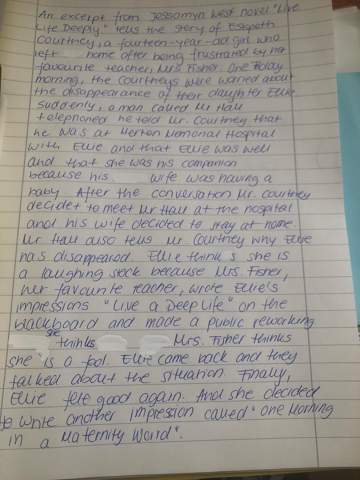 An excerpt from Jessamyn West novel "Live
Life Deeply" tells the story of Elspeth
Courtney, a fourteen-year-old girl who
left home after being frustrated by her
favourite teacher, Mrs Fisher. One Friday
morning, the Courtneys were worried about
the disappearance of their daughter Ellie.
Suddenly, a man called Mr Hall
telephoned he told Mr. Courtney that
he was at Merton Memorial Hospital
with Ellie and that Ellie was well
and that she was his companion
because his wife was having a
baby. After the conversation Mr. Courtney
decidet to meet Mr Hall at the hospital
and his wife decided to stay at home.
Mr Hall also tells Mr Courtney why Ellie
has disappeared. Ellie think s she is
a laughing stock because Mrs. Fisher,
her favourite teacher, wrote Ellie's
impressions "Live a Deep Life" on the
blackboard and made a public reworking
she thinks Mrs. Fisher thinks
she is a fool. Ellie came back and they
talked about the situation. Finally,
Ellie felt good again. And she decided
to write another impression called "One Morning
in a Maternity Ward".